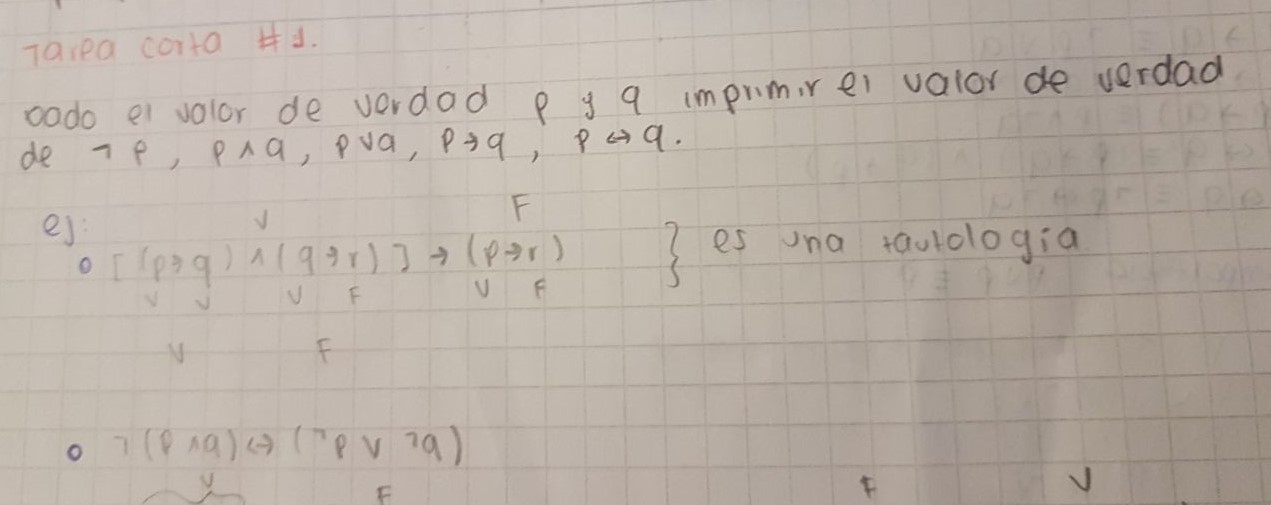 Tarea corta #1.
Dado el valor de verdad p y q imprimir el valor de verdad
de ¬p, p∧q, p∨q, p→q, p↔q.
ej: V F
[(p→q) ∧ (q→r)] → (p→r) } es una tautología
V V V F V F
V F
¬(p∧q) ↔ (¬p ∨ ¬q)
V F F V